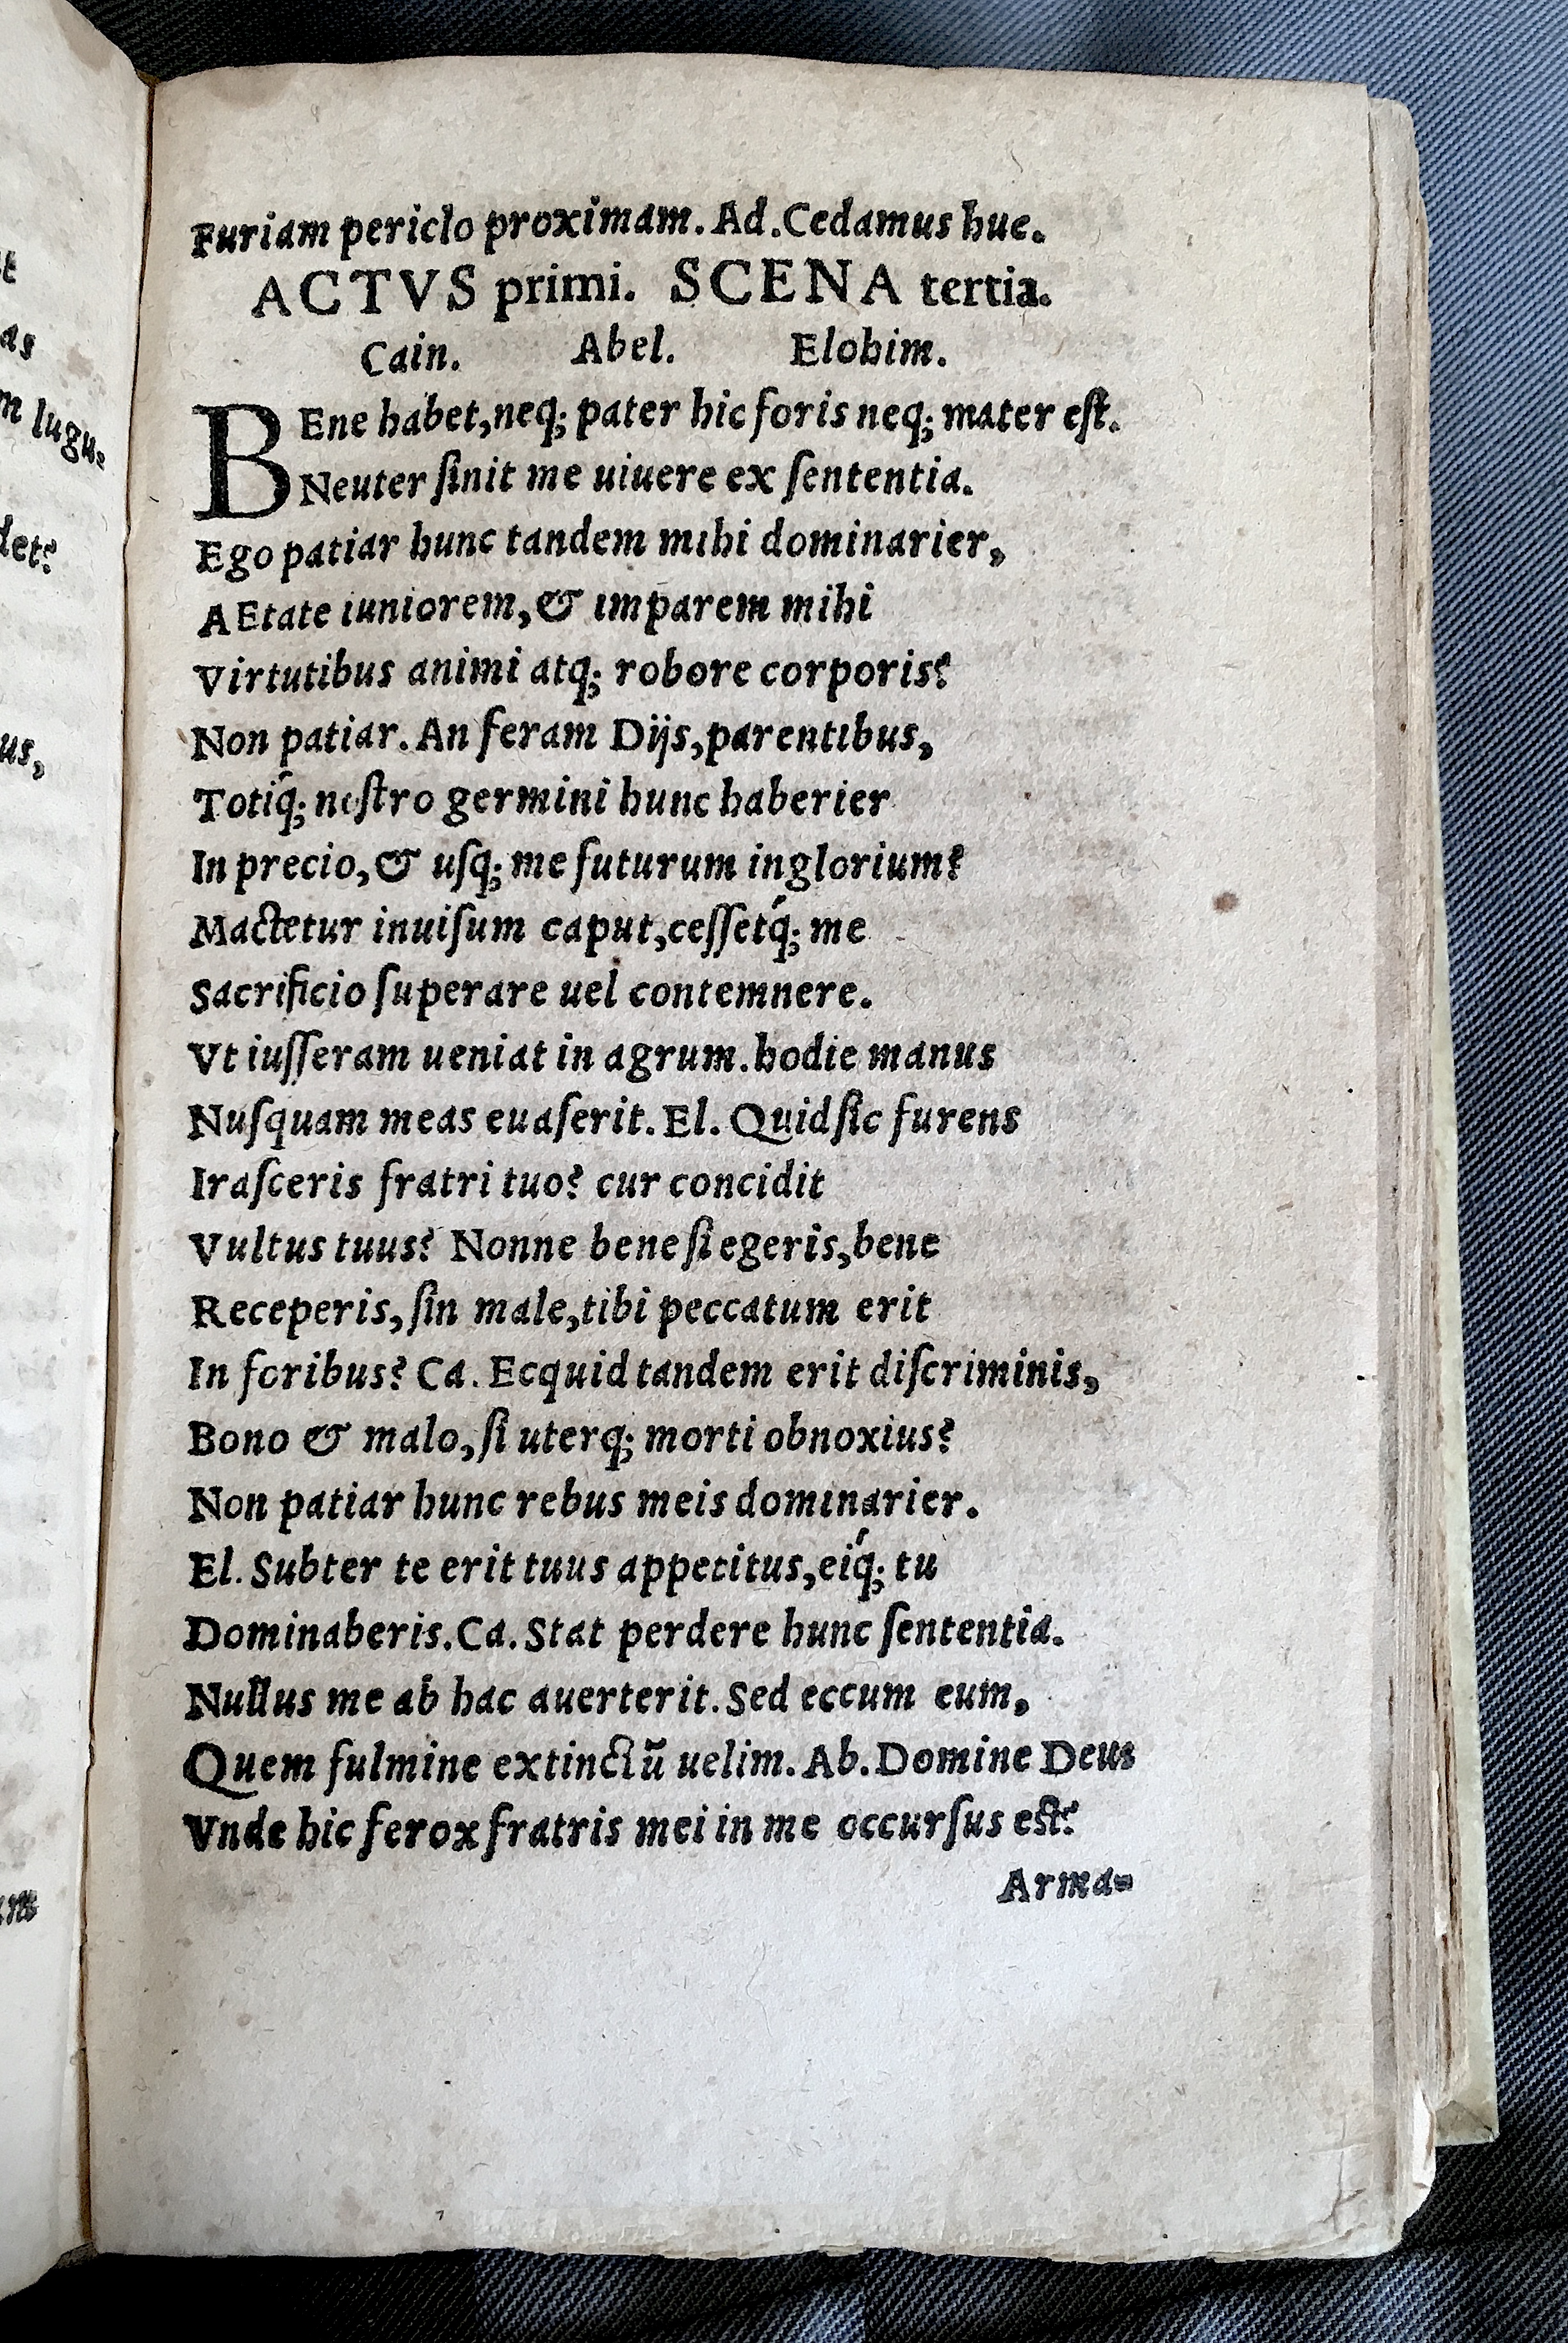 Furiam periclo proximam. Ad. Cedamus huc.
ACTVS primi. SCENA tertia.
Cain. Abel. Elohim.
BEne habet, neq; pater hic foris neq; mater est.
Neuter ſinit me uiuere ex ſententia.
Ego patiar hunc tandem mihi dominarier,
AEtate iuniorem, & imparem mihi
Virtutibus animi atq; robore corporis?
Non patiar. An feram Dijs, parentibus,
Totiq́; noſtro germini hunc haberier
In precio, & uſq; me futurum inglorium?
Mactetur inuiſum caput, ceſſetq́; me
Sacrificio ſuperare uel contemnere.
Vt iuſſeram ueniat in agrum. hodie manus
Nuſquam meas euaſerit. El. Quid ſic furens
Iraſceris fratri tuo? cur concidit
Vultus tuus? Nonne bene ſi egeris, bene
Receperis, ſin male, tibi peccatum erit
In foribus? Ca. Ecquid tandem erit diſcriminis,
Bono & malo, ſi uterq; morti obnoxius?
Non patiar hunc rebus meis dominarier.
El. Subter te erit tuus appetitus, eiq́; tu
Dominaberis. Ca. Stat perdere hunc ſententia.
Nullus me ab hac auerterit. Sed eccum eum,
Quem fulmine extinctū uelim. Ab. Domine Deus
Vnde hic ferox fratris mei in me occurſus eſt?
Arma-